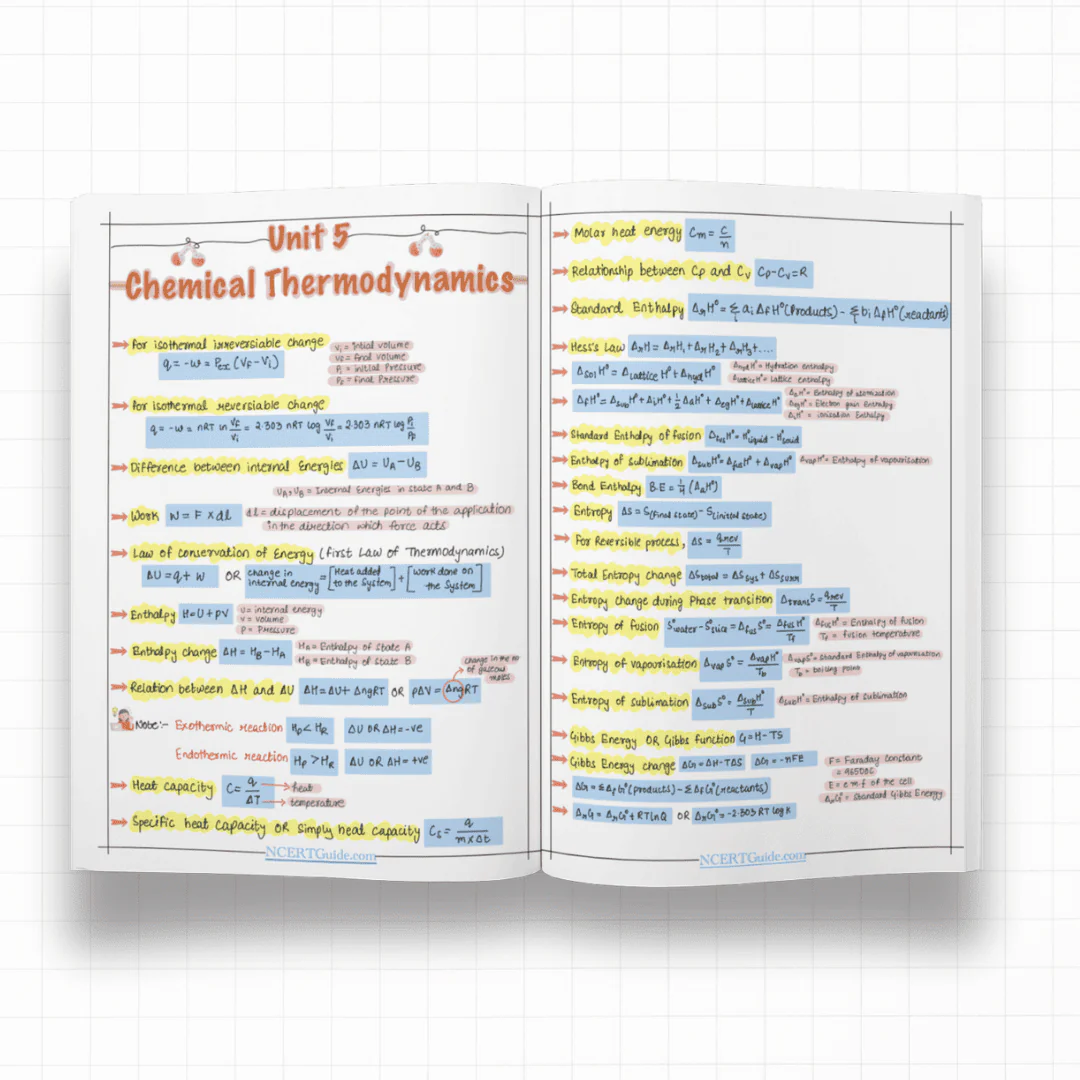 Unit 5
Chemical Thermodynamics
For isothermal irreversiable change
q = -w = Pex (VF - Vi)
Vi = Intial volume
VF = final volume
Pi = initial Pressure
PF = Final Pressure
For isothermal reversiable change
q = -w = nRT ln VF/Vi = 2.303 nRT log VF/Vi = 2.303 nRT log Pi/PF
Difference between internal Energies ΔU = UA - UB
UA, UB = Internal Energies in state A and B
Work W = F × dl
dl = displacement of the point of the application
in the direction which force acts
Law of conservation of Energy (first Law of Thermodynamics)
ΔU = q + w OR change in internal energy = [Heat added to the System] + [work done on the System]
Enthalpy H = U + PV
U = internal energy
V = volume
P = Pressure
Enthalpy change ΔH = HB - HA
HA = Enthalpy of State A
HB = Enthalpy of State B
Relation between ΔH and ΔU ΔH = ΔU + ΔngRT OR PΔV = ΔngRT
change in the no
of gaseous
moles
Note:- Exothermic reaction HP < HR ΔU OR ΔH = -ve
Endothermic reaction HP > HR ΔU OR ΔH = +ve
Heat capacity C = q/ΔT
heat
temperature
Specific heat capacity OR Simply heat capacity Cs = q/m×Δt
NCERTGuide.com
Molar heat energy Cm = C/n
Relationship between CP and CV CP - CV = R
Standard Enthalpy ΔrH° = Σ ai ΔfH° (Products) - Σ bi ΔfH° (reactants)
Hess's Law ΔrH = ΔrH1 + ΔrH2 + ΔrH3 + ....
Δsol H° = Δlattice H° + Δhyd H°
Δhyd H° = Hydration enthalpy
Δlattice H° = lattice enthalpy
ΔfH° = Δsub H° + ΔiH° + 1/2 ΔaH° + Δeg H° + Δlattice H°
ΔaH° = Enthalpy of atomization
Δeg H° = Electron gain Enthalpy
ΔiH° = ionisation Enthalpy
Standard Enthalpy of fusion Δfus H° = H°liquid - H°solid
Enthalpy of sublimation Δsub H° = Δfus H° + Δvap H° Δvap H° = Enthalpy of vapourisation
Bond Enthalpy
Entropy ΔS = S(final state) - S(initial state)
For Reversible process, ΔS = qrev/T
Total Entropy change ΔStotal = ΔSsys + ΔSsurr
Entropy change during Phase transition Δtrans S = qrev/T
Entropy of fusion S°water - S°ice = Δfus S° = Δfus H°/Tf
Δfus H° = Enthalpy of fusion
Tf = fusion temperature
Entropy of vapourisation Δvap S° = Δvap H°/Tb
Δvap S° = Standard Enthalpy of vapourisation
Tb = boiling point
Entropy of sublimation Δsub S° = Δsub H°/T Δsub H° = Enthalpy of sublimation
Gibbs Energy OR Gibbs function G = H - TS
Gibbs Energy change ΔG = ΔH - TΔS ΔG = -nFE
F = Faraday constant
E = e m f of the cell
ΔrG° = Standard Gibbs Energy
ΔG = Σ Δf G° (products) - Σ Δf G° (reactants)
ΔrG = ΔrG° + RT lnQ OR ΔrG° = -2.303 RT log K
NCERTGuide.com